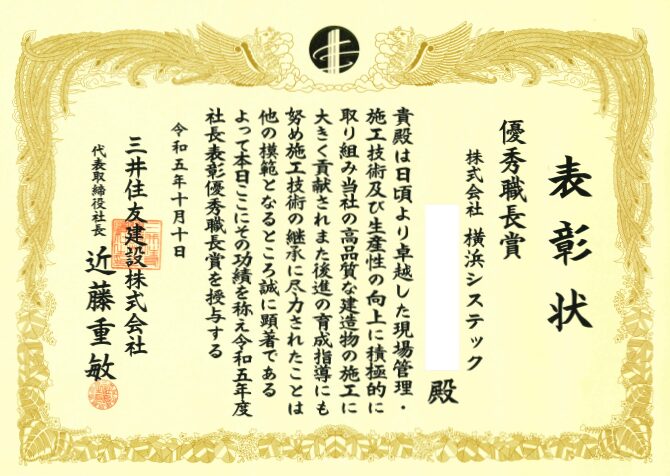 表彰状
優秀職長賞
株式会社 横浜システック
殿
貴殿は日頃より卓越した現場管理・
施工技術及び生産性の向上に積極的に
取り組み当社の高品質な建造物の施工に
大きく貢献されまた後進の育成指導にも
努め施工技術の継承に尽力されたことは
他の模範となるところ誠に顕著である
よって本日ここにその功績を称え令和五年度
社長表彰優秀職長賞を授与する
令和五年十月十日
三井住友建設株式会社
代表取締役社長 近藤重敏